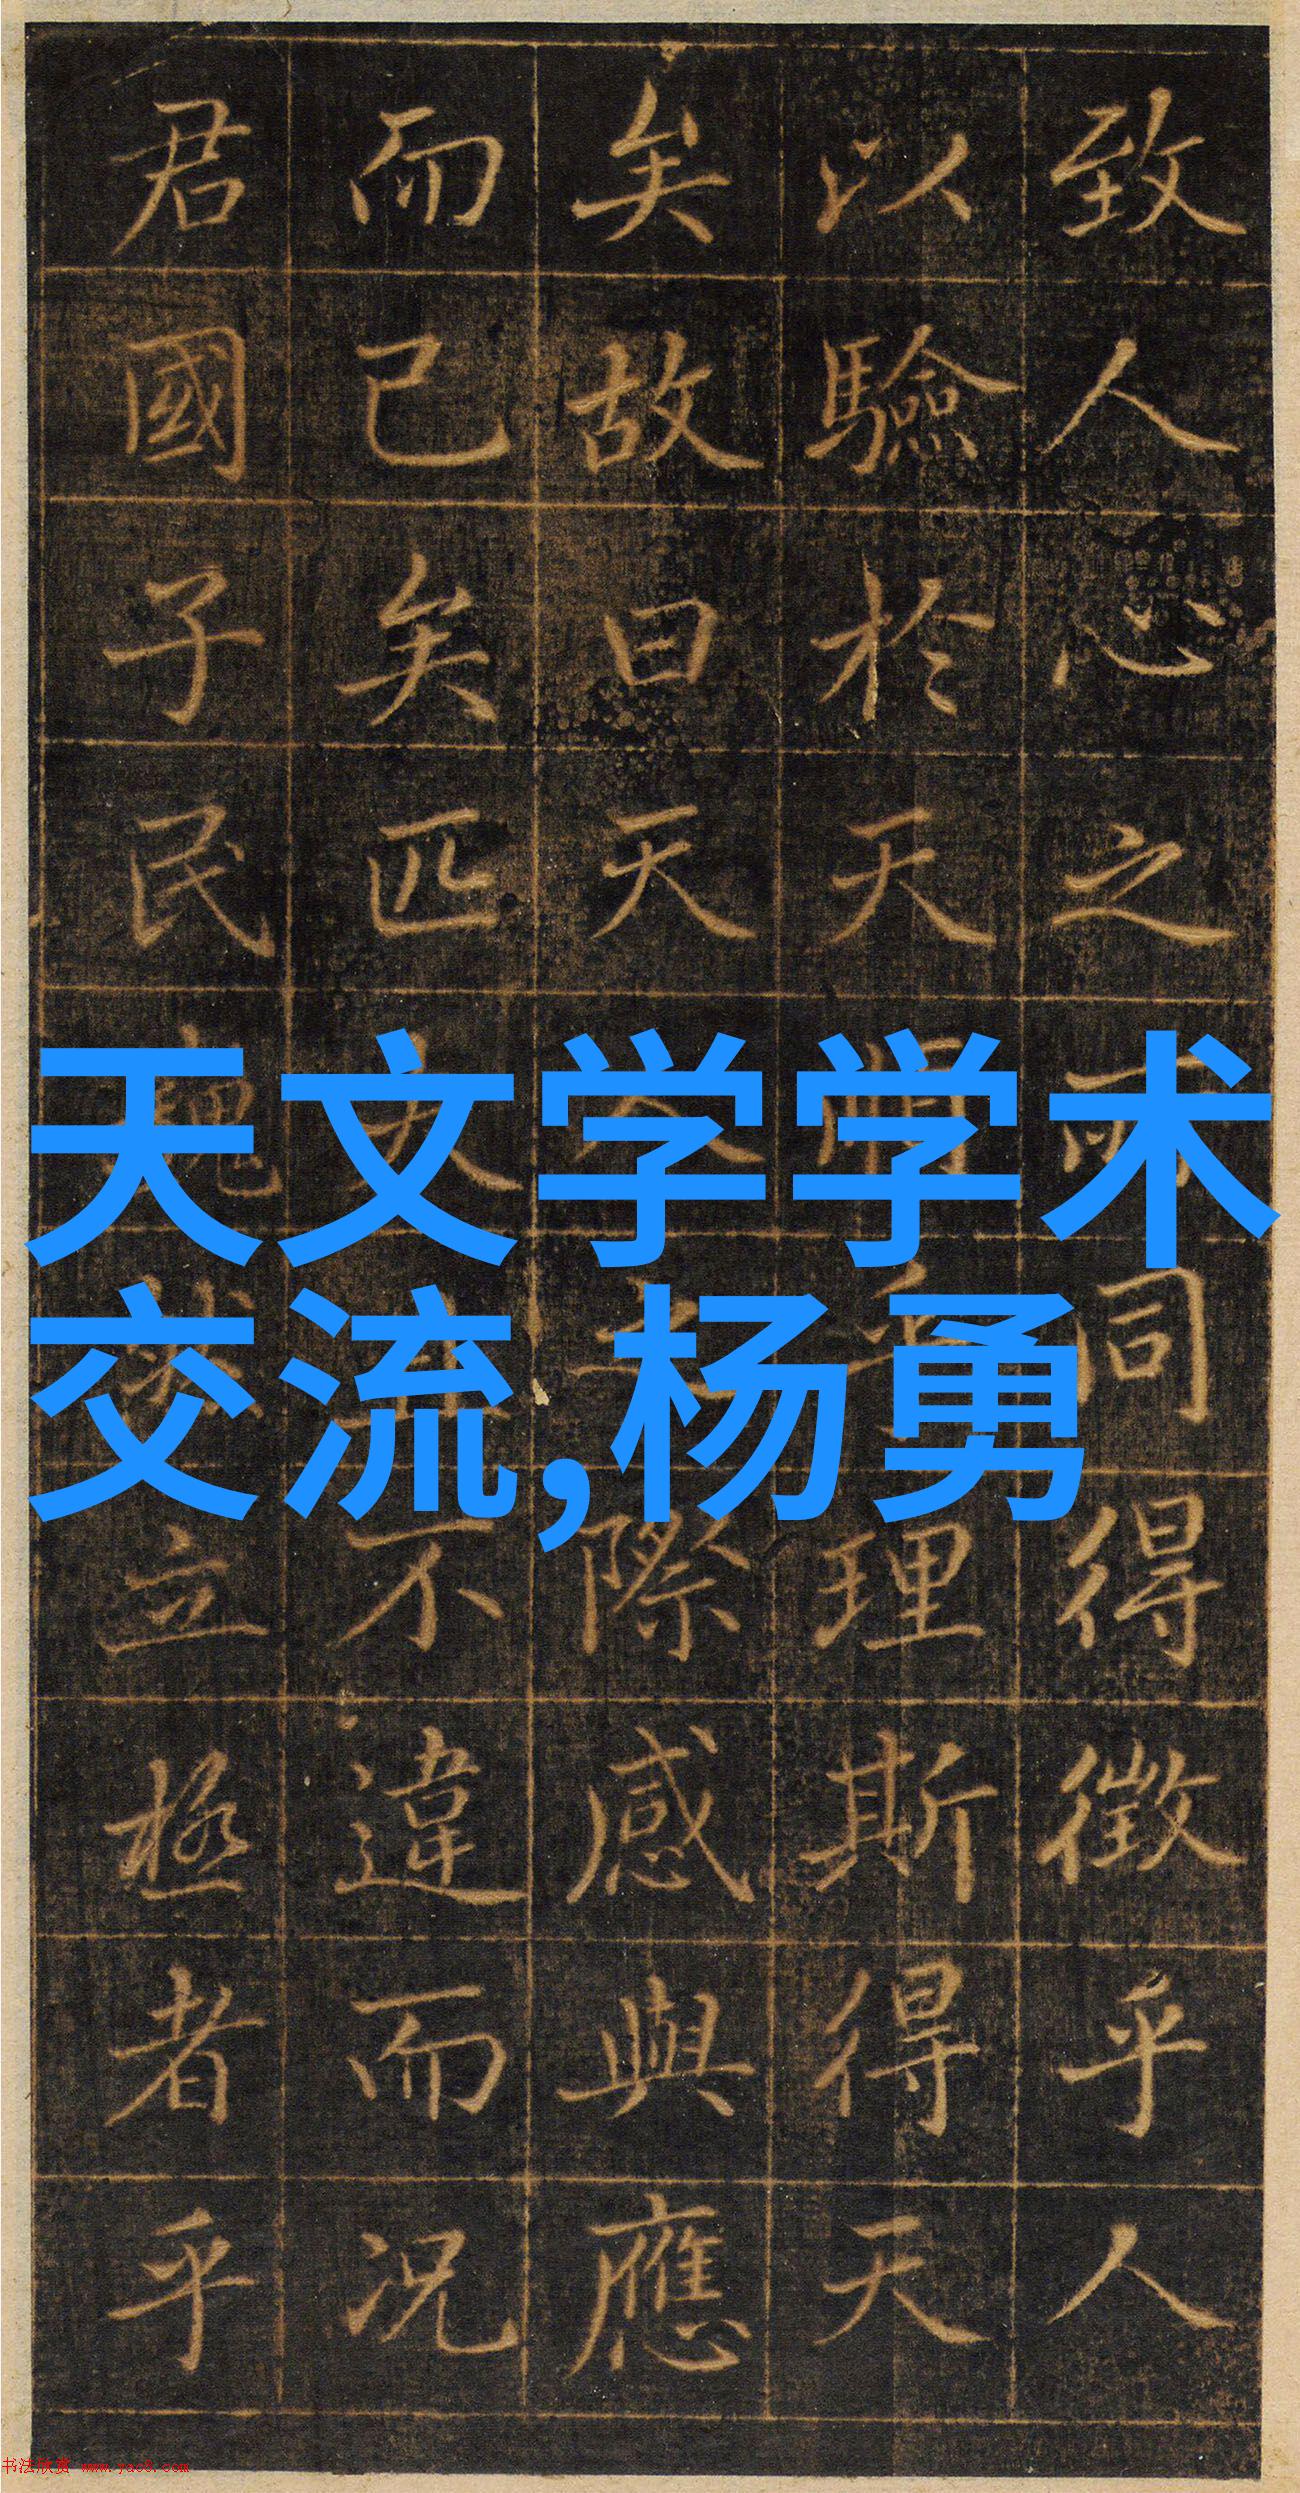 天文学学术
交流,杨勇
致人心之同得徵乎人
以驗於天乎理斯得天
矣故曰天人之際感與應
而已矣匹夫且不違而況
君國子民巍然立極者乎
书法欣赏 www.yac8.com